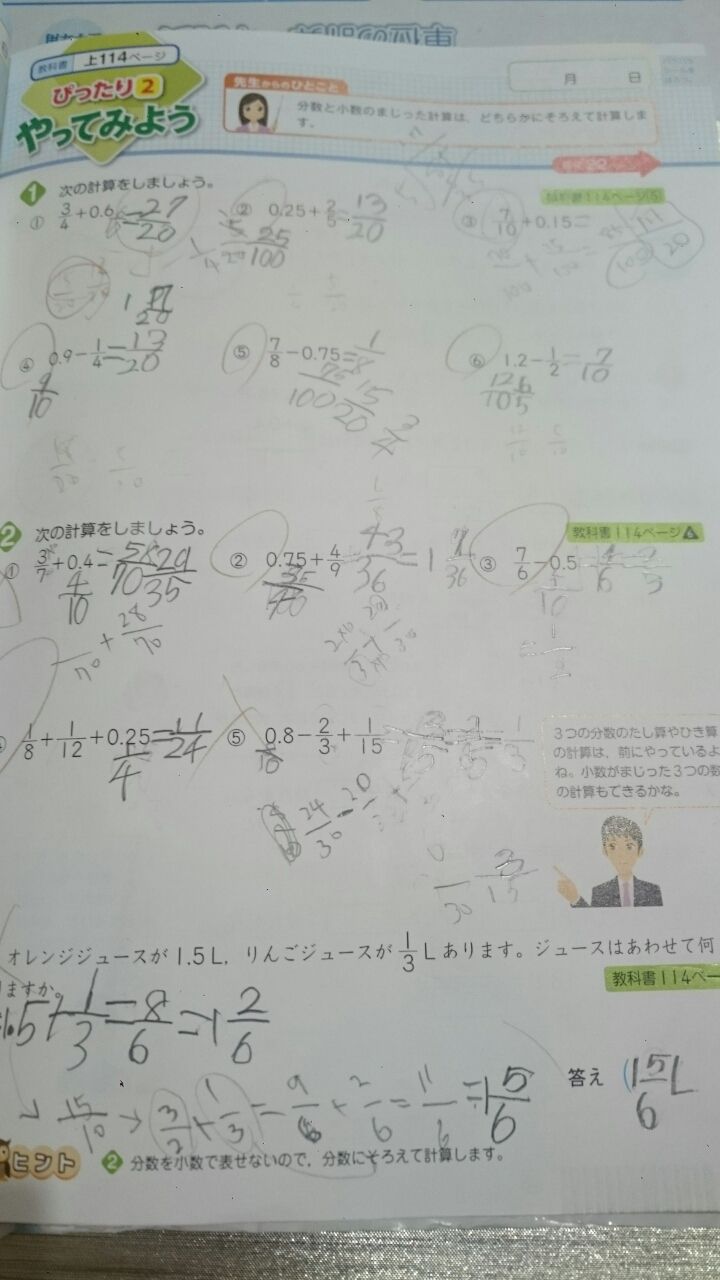 教科書 上114ページ
ぴったり2
やってみよう
先生からのひとこと
分数と小数のまじった計算は、どちらかにそろえて計算しま
す。
月 日
1 次の計算をしましょう。
① 3/4+0.6=27/20
1 7/20
② 0.25+2/5=13/20
25/100
③ 7/10+0.15=
④ 0.9-1/4=13/20
9/10
⑤ 7/8-0.75=1/8
75/100 15/20 3/4
⑥ 1.2-1/2=7/10
12/10 6/5
2 次の計算をしましょう。
教科書114ページ
① 3/7+0.4=58/70 29/35
4/10
+28/70
② 0.75+4/9=43/36=1 7/36
③ 7/6-0.5
④ 1/8+1/12+0.25=11/24
1/4
⑤ 0.8-2/3+1/15
8/10
24/30-20/30
3/15
3つの分数のたし算やひき算
の計算は、前にやっているよ
ね。小数がまじった3つの数
の計算もできるかな。
オレンジジュースが1.5L，りんごジュースが1/3Lあります。ジュースはあわせて何
りますか。
教科書114ペー
1.5+1/3=8/6=1 2/6
→15/10→3/2+1/3=9/6+2/6=11/6=1 5/6
答え (1 5/6L
ヒント 2 分数を小数で表せないので，分数にそろえて計算します。